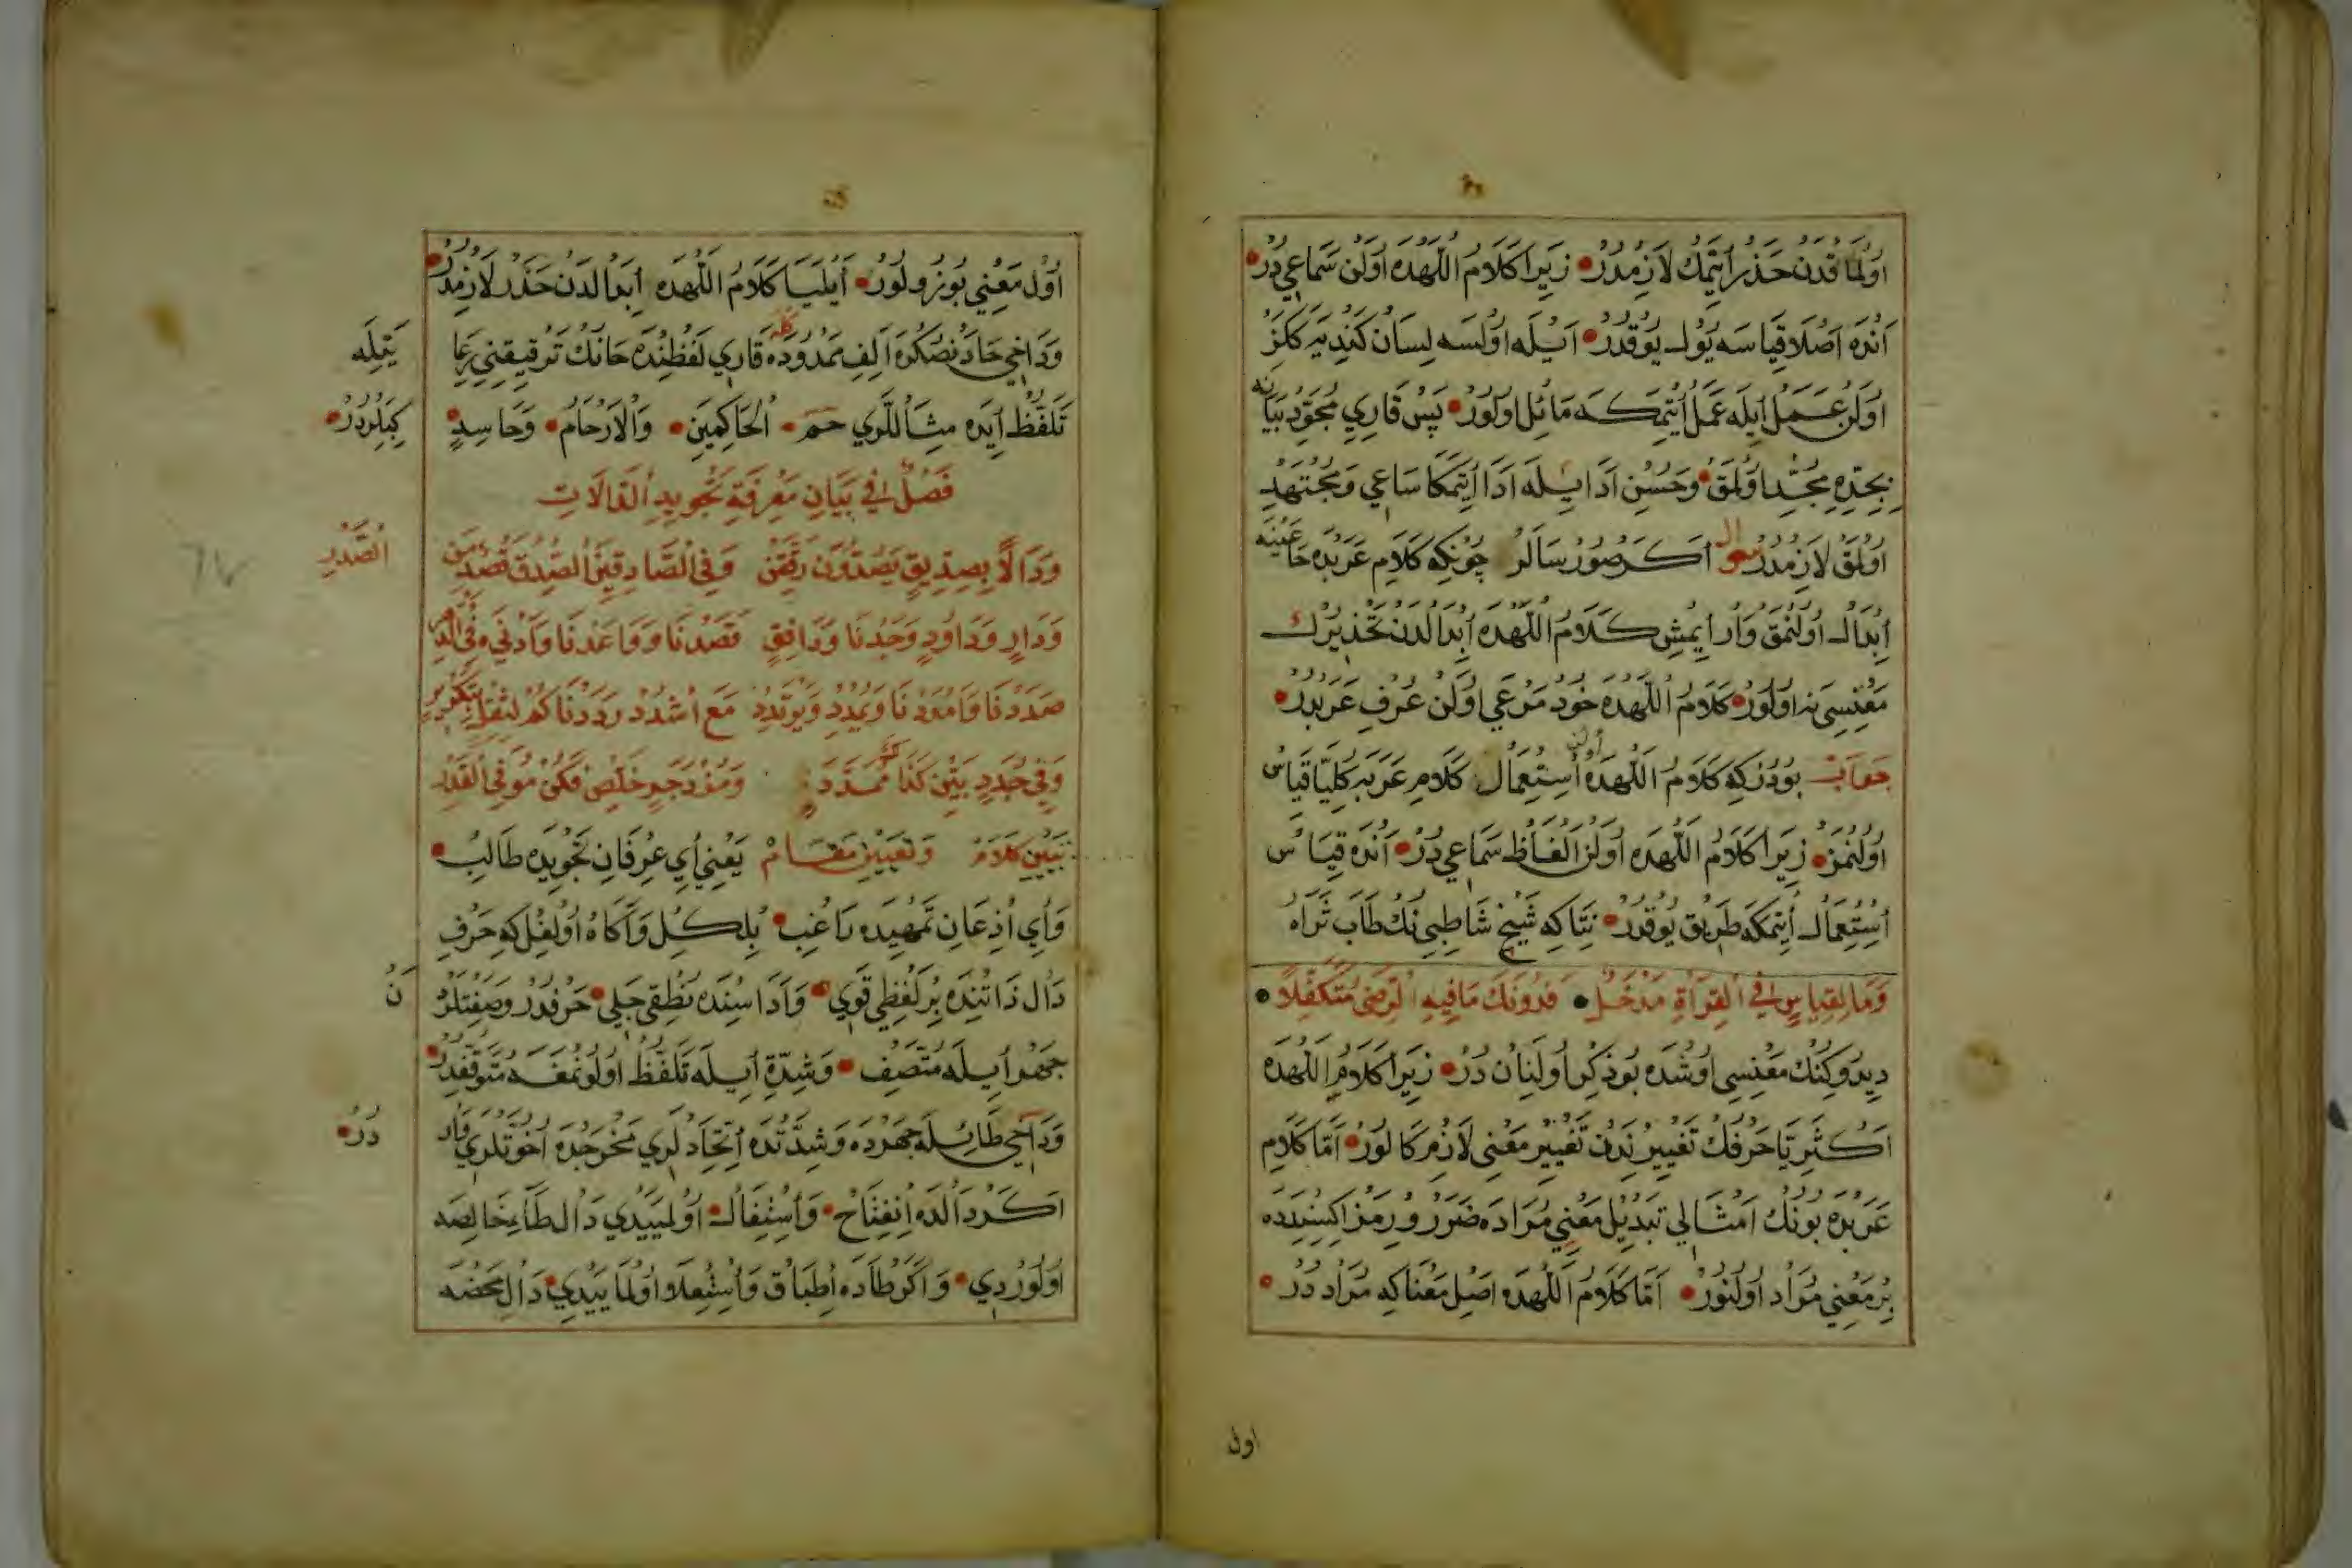 اولمقدن حذر ايتمك لازمدر زيرا كلام اللهده اولن سماعي در
انده اصلا قياسه يول يوقدر ايله اولسه لسان كنديه كلز
اولن عمل ايله عمل ايتمكه مائل اولور پس قاري مجود بيانه
بجده مجد اولمق وحسن ادا ايله ادا ايتمكا ساعي ومجتهد
اولمق لازمدر سوال اكر صورسالر چونكه كلام عربده حا عينه
ابدال اولنمق وار ايمش كلام اللهده ابدالدن تحذيرك
معنسى نه اولور كلام اللهده خود مرعي اولن عرف عربدر
جواب بودركه كلام اللهده اولن استعمال كلام عربه كليا قياس
اولنمز زيرا كلام اللهده اولن الفاظ سماعي در انده قياس
استعمال ايتمكه طريق يوقدر نتاكه شيخ شاطبي نك طاب ثراه
وَمَا لِقِيَاسٍ فِي الْقِرَاءَةِ مَدْخَلٌ فَدُونَكَ مَا فِيهِ الرِّضَى مُتَكَفِّلًا
ديدوكنك معنسي اوشده بو ذكر اولنان در زيرا كلام اللهده
اكثريا حرفك تغييرندن تغيير معنى لازم كالور اما كلام
عربده بونك امثالي تبديل معني مراده ضرر ويرمز ايكيسندده
بر معني مراد اولنور اما كلام اللهده اصل معناكه مراد در
اول
اول معني بوزولور ايليا كلام اللهده ابدالدن حذر لازمدر
وداخي حادنصكره الف ممدوده كله قاري لفظنده حانك ترقيقني رعايتيله
تلفظ ايده مثاللري حم الحاكمين والارحام وحاسد كبيلردر
فصل في بيان معرفة تجويد الدالات
ودالا بصديق يصدون رققن وفي الصادقين الصدق قصد من الصدر
ودار وداود وجدنا ودافق قصدنا وواعدنا وادنى وفي الدبر
صددنا وامددنا ويمدد ويرتدد مع اشدد رددناكم لثقل بتكرير
وفي جدد بين كذا ممددة ومزدجر خلص فكن موفي القدر
تبيين كلام وتعيين مقام يعني اي عرفان تجويده طالب
واي اذعان تمهيده راغب بلكل وآكاه اولغل كه حرف
دال ذاتنده بر لفظي قوي واداسنده نطقى جلي حرفدر وصفتلرنك
جهر ايله متصف وشدة ايله تلفظ اولونمغه متوقفدر
وداخي طا ايله جهرده وشدتده اتحادلري مخرجده اخوتلري واردر
اكر دالده انفتاح واستفال اولمييدي دال طاء خالصه
اولوردي واكر طاده اطباق واستعلا اولمايدي دال محضه